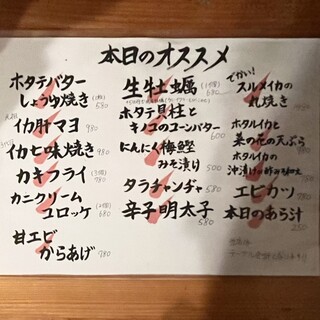 本日のオススメ
ホタテバター
しょうゆ焼き
580
イカ肝マヨ 980
イカ七味焼き 980
カキフライ
980
カニクリーム
コロッケ 680
甘エビ
からあげ 780
生牡蠣
680
ホタテ貝柱と
キノコのコーンバター
600
にんにく梅鰹
みそ漬け 500
タラチャンヂャ 580
辛子明太子
580
でかい!
スルメイカの
丸焼き
ホタルイカと
菜の花の天ぷら
ホタルイカの
沖漬け
エビカツ
780
本日のあら汁
250